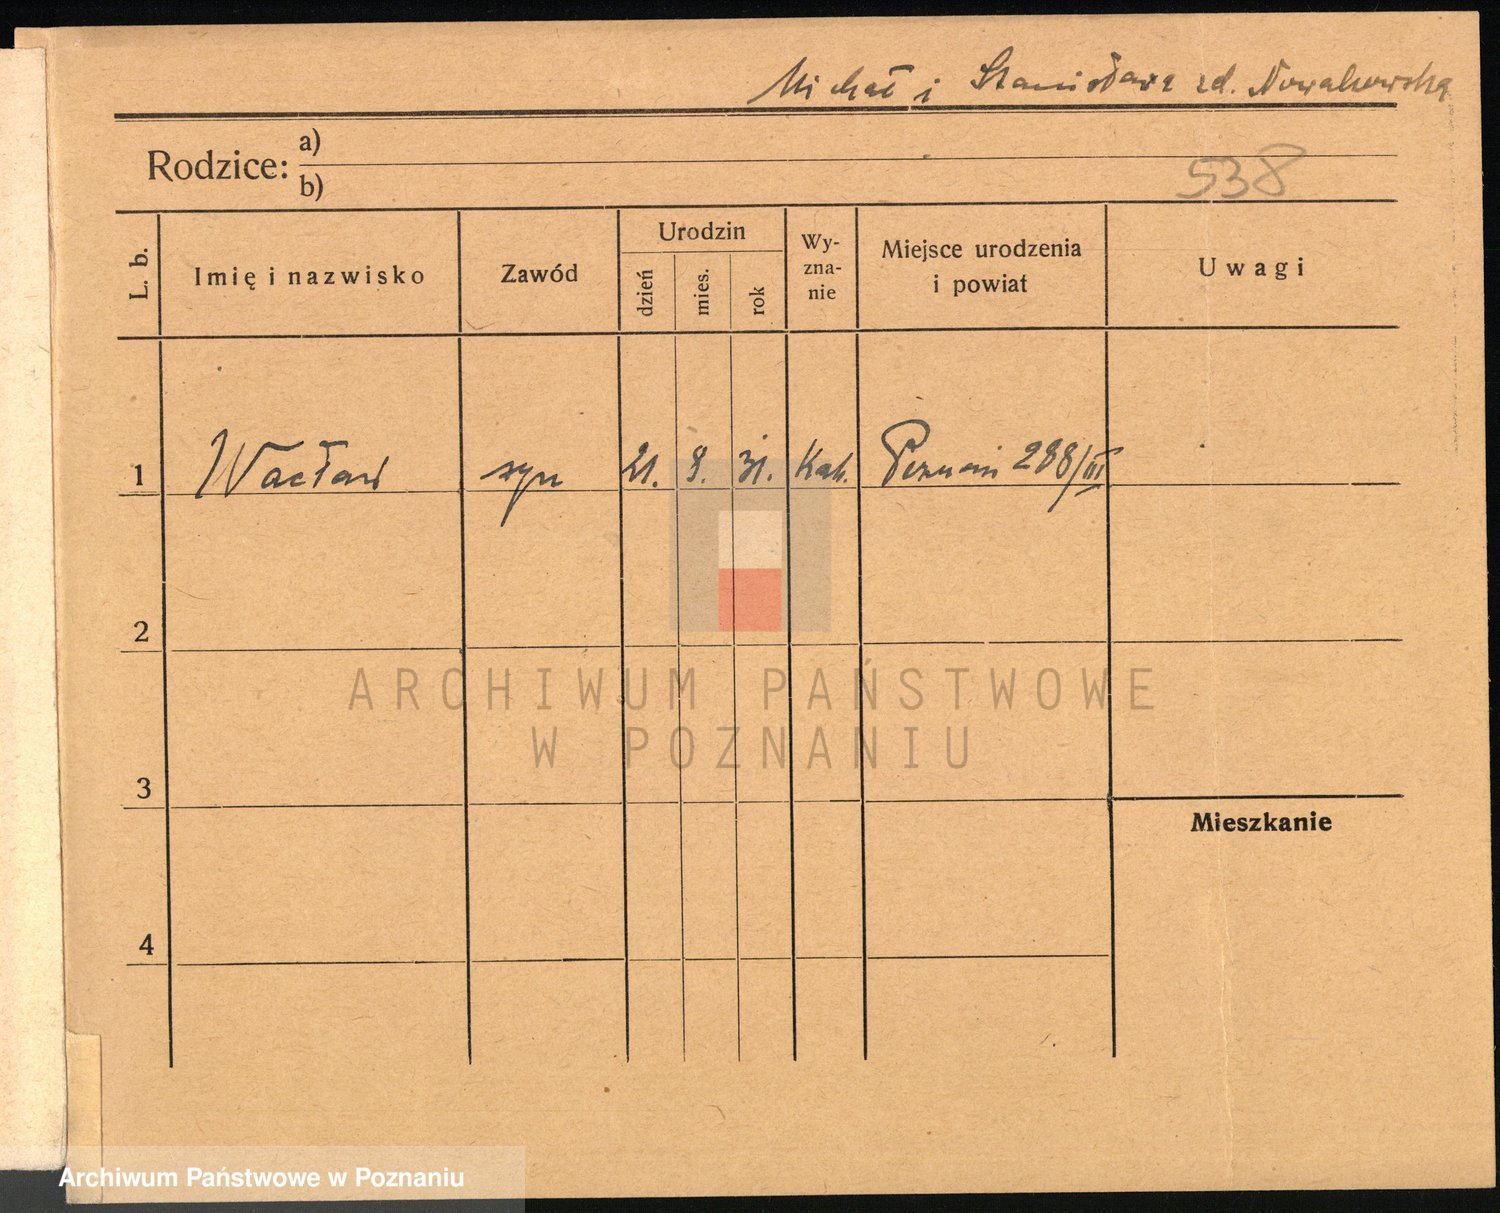 Michał i Stanisława zd. Nowakowska
Rodzice: a)
b)
538
L. b.
Imię i nazwisko
Zawód
Urodzin
dzień
mies.
rok
Wy-
zna-
nie
Miejsce urodzenia
i powiat
Uwagi
1 Wacław syn 21. 9. 31. Kat. Poznań 288/III
2
3
4
Mieszkanie
ARCHIWUM PAŃSTWOWE
W POZNANIU
Archiwum Państwowe w Poznaniu